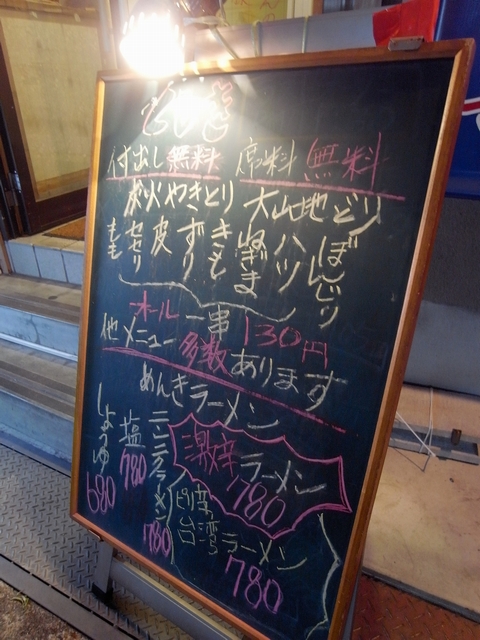 付出し 無料 席料 無料
炭火やきとり 大山地どり
もも セセリ 皮 ずり きも ねぎま ハツ ぼんじり
オール 一串 130円
他メニュー多数あります
めんきラーメン
しょうゆ 680
塩 780
ニンニクラーメン 780
激辛ラーメン 780
台湾ラーメン 780